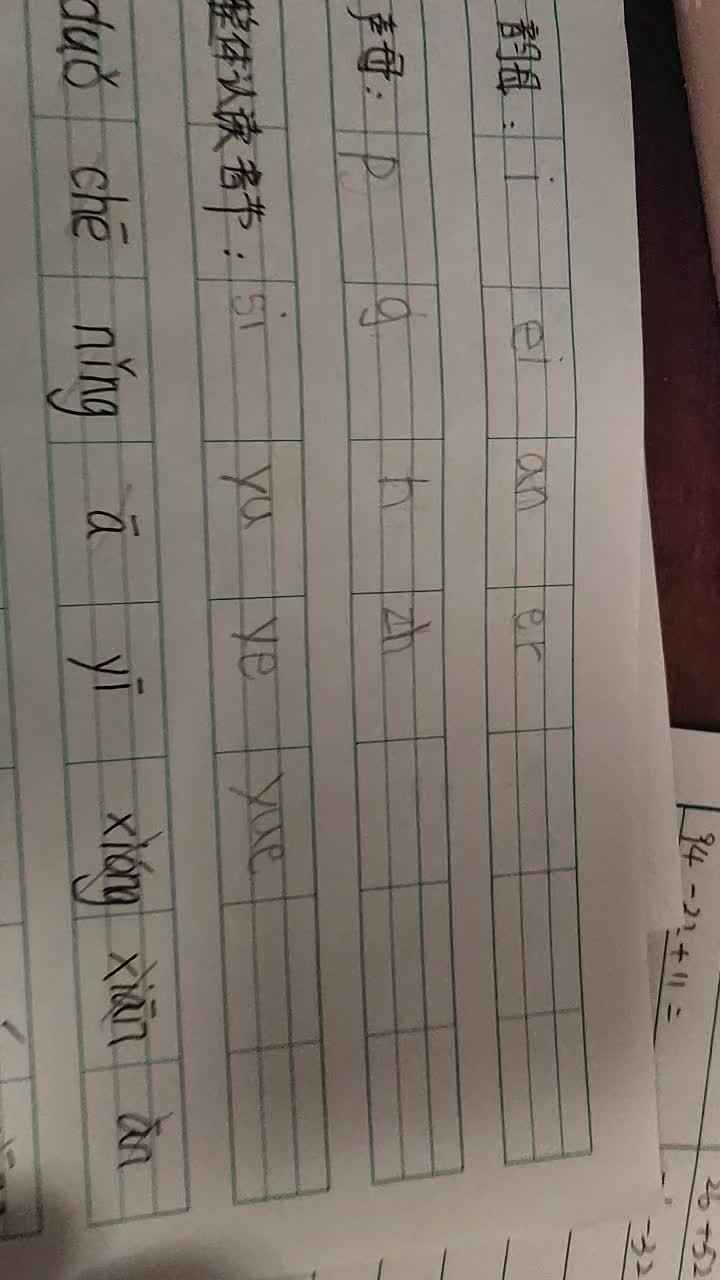 韵母：i ei an er
声母：p g h zh
整体认读音节：si yu ye yue
duǒ chē nǐng ā yī xiáng xiān àn
94-23+11=
26+52
-32